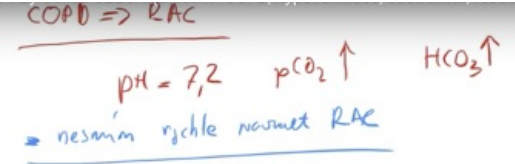 COPD => RAC
pH = 7,2 pCO₂ ↑ HCO₃ ↑
nesmím rychle navrnet RAC